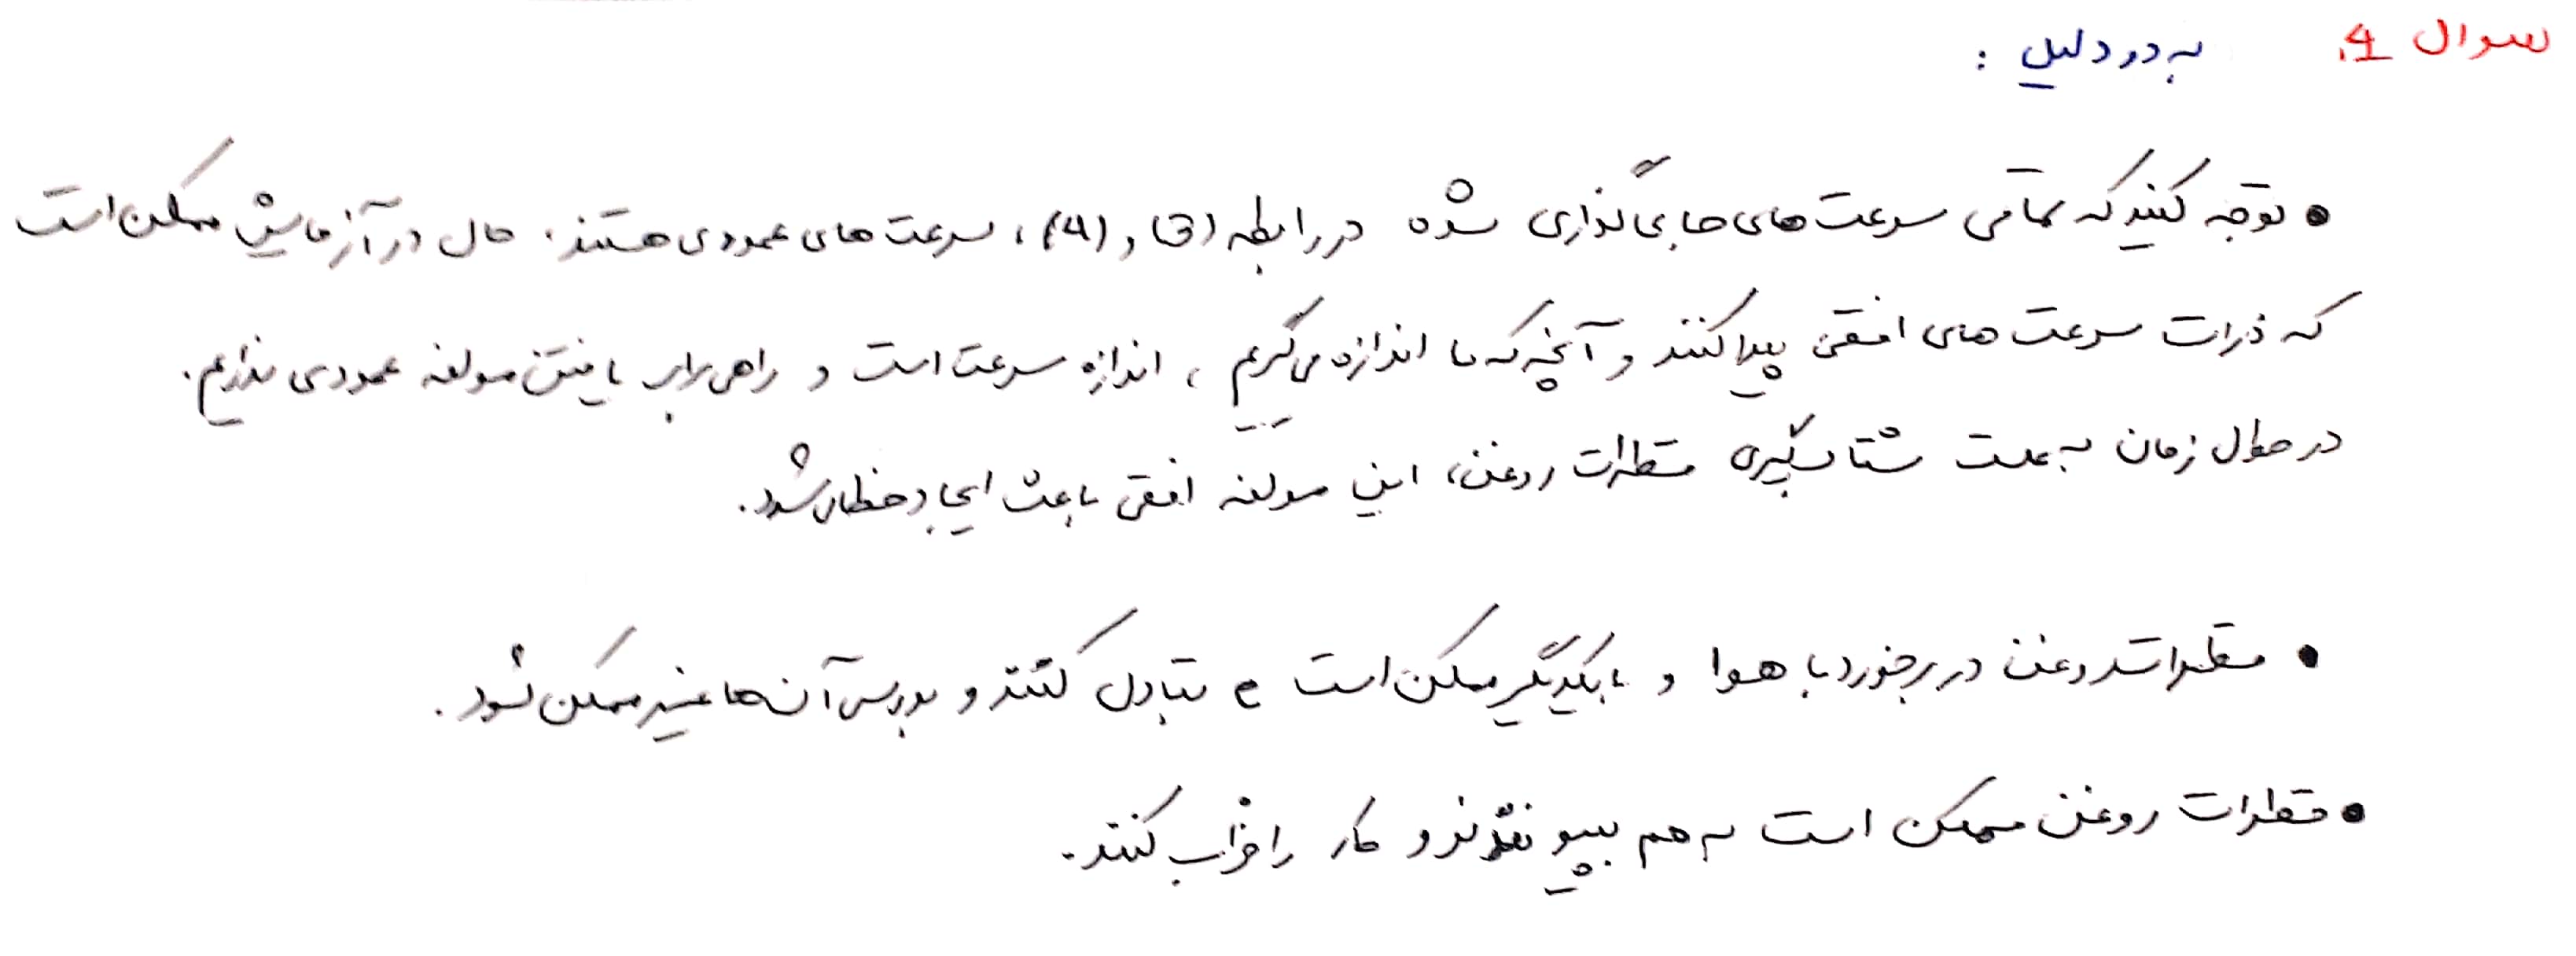 سوال 4. به دو دلیل :
• توجه کنید که تمامی سرعت های جای گذاری شده در رابطه (3) و (4)، سرعت های عمودی هستند. حال در آزمایش ممکن است
که ذرات سرعت های افقی پیدا کنند و آنچه که ما اندازه می گیریم ، اندازه سرعت است و راهی برای یافتن مولفه عمودی نداریم.
در طول زمان به علت شتاب گیری قطرات روغن، این مولفه افقی باعث ایجاد خطا می شود.
• قطرات روغن در برخورد با هوا و با یکدیگر ممکن است e تبادل کنند و بررسی آن ها غیر ممکن شود.
• قطرات روغن ممکن است به هم بپیوندند و کار را خراب کنند.